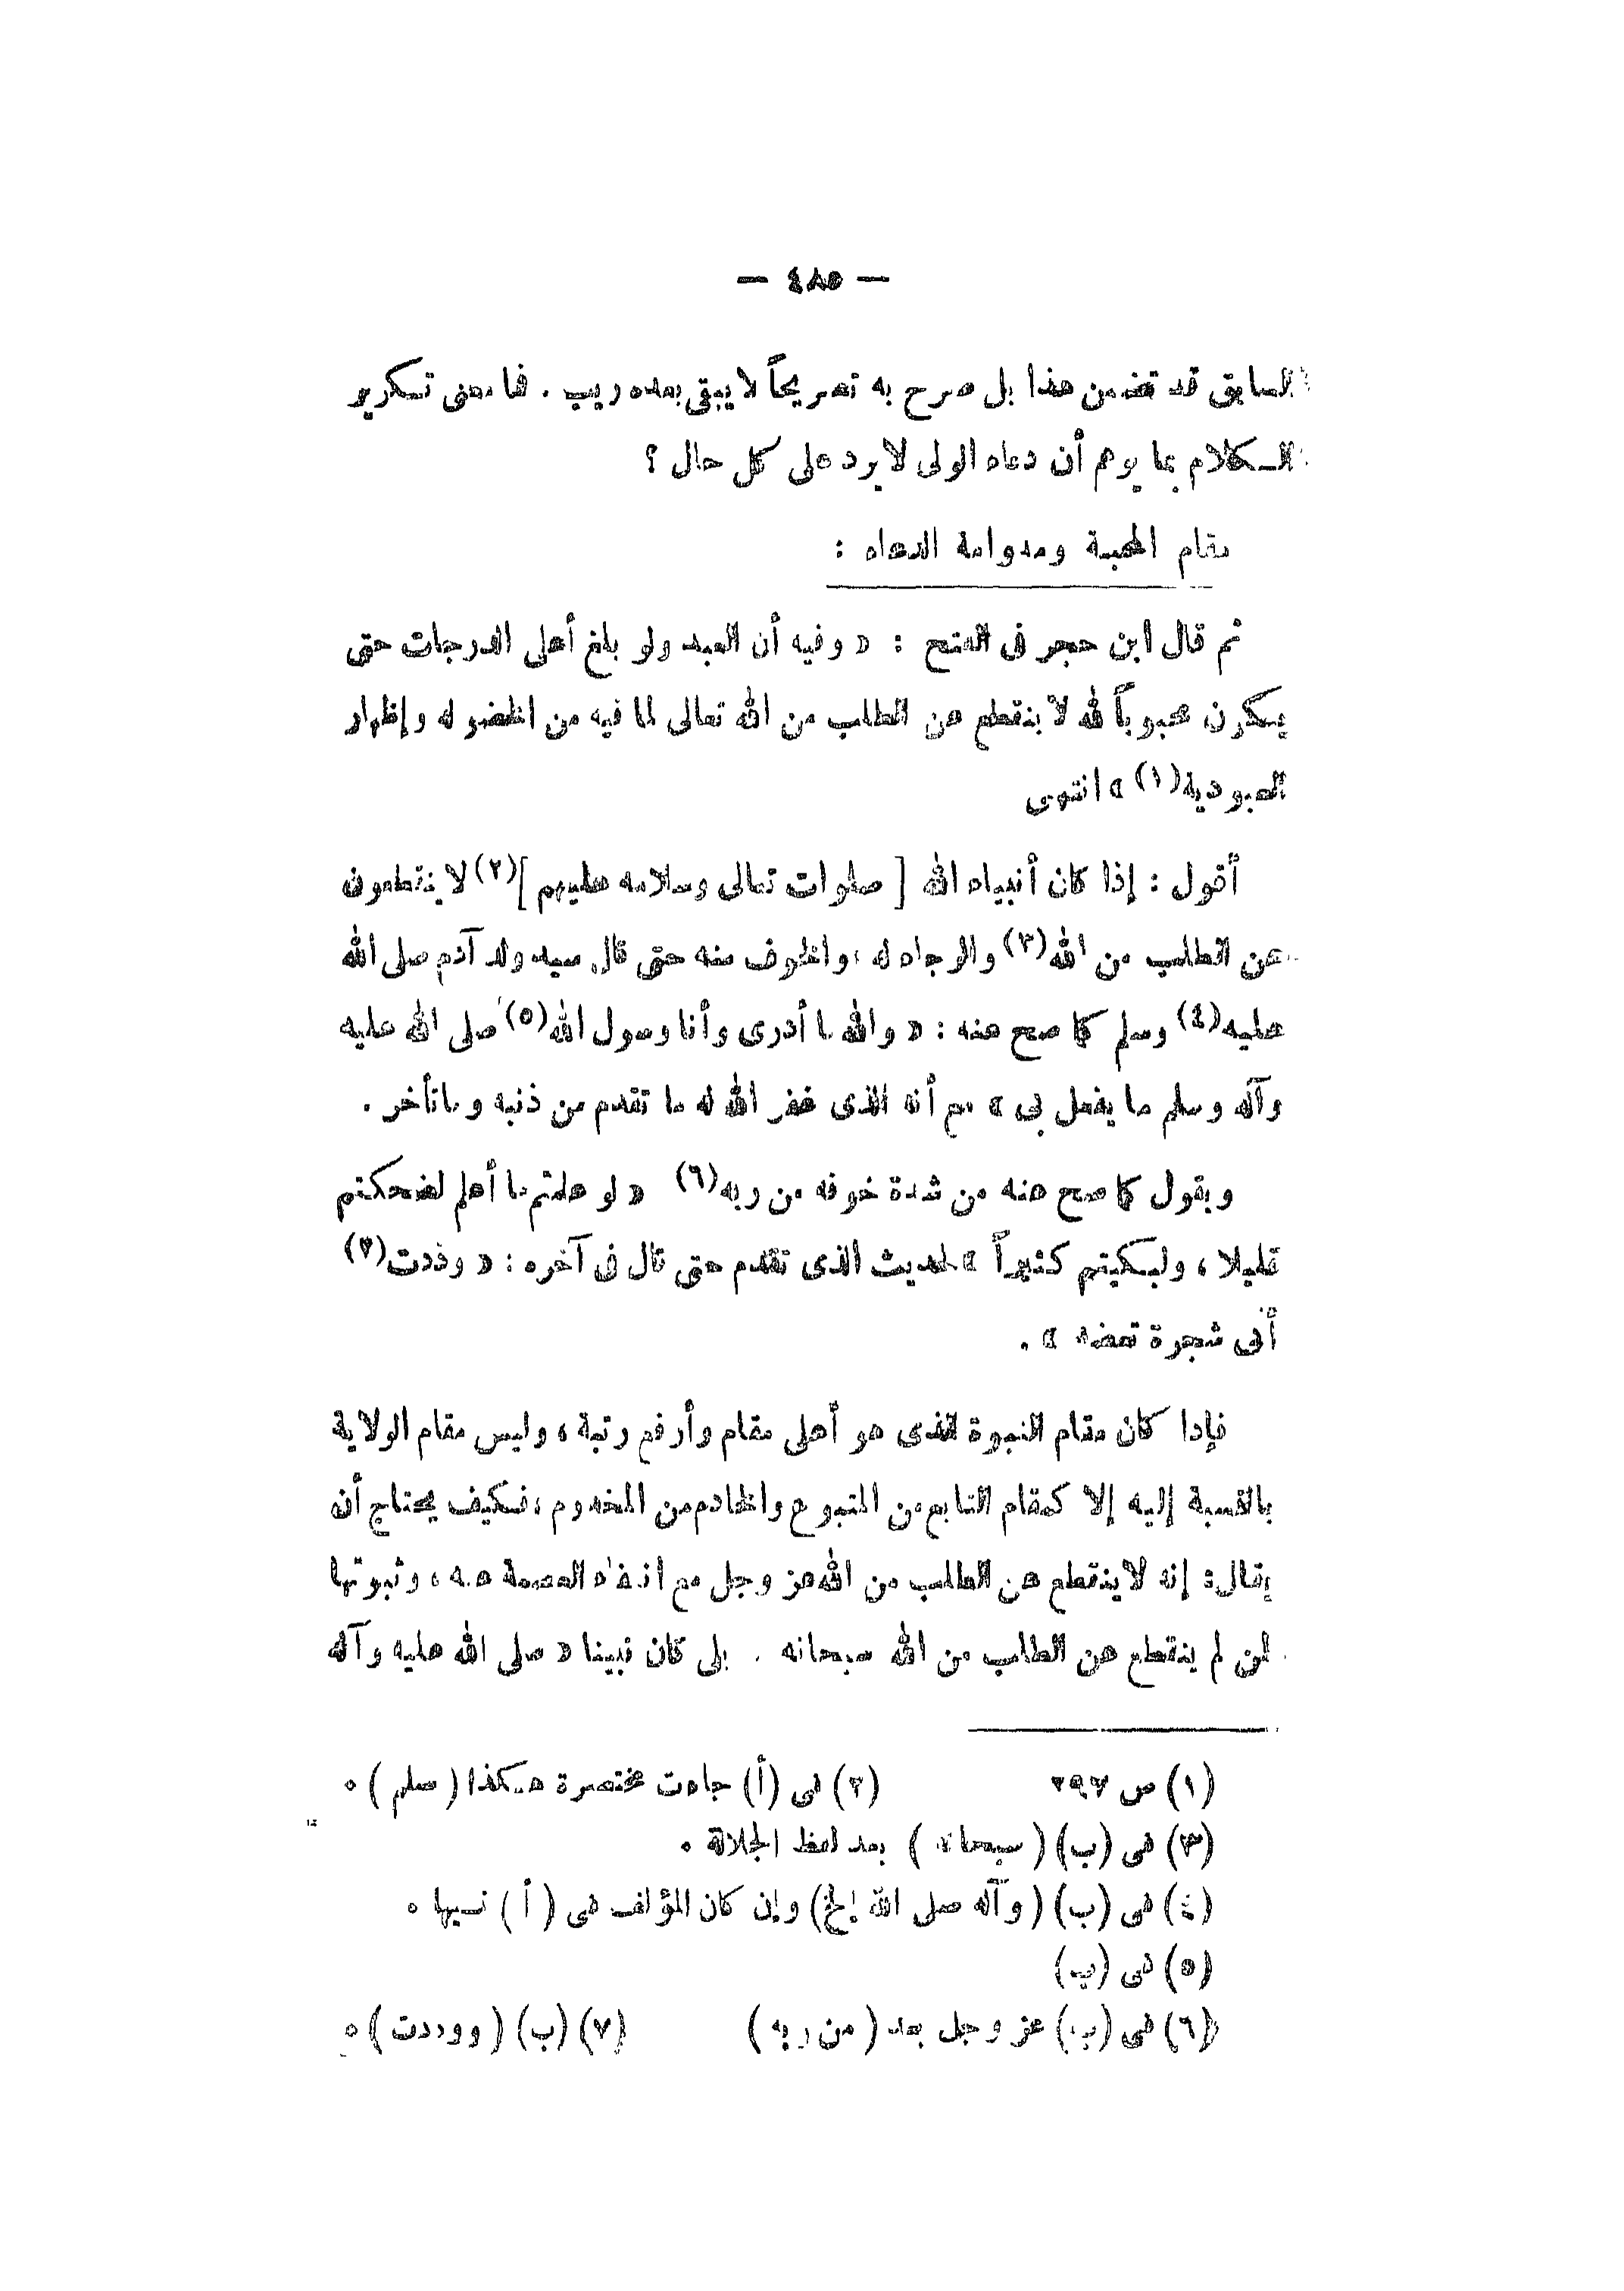 — ٤٨٥ —
السابق قد تضمن هذا بل صرح به تصريحاً لا يبقى بعده ريب . فما معنى تكرير
الكلام بما يوهم أن دعاء الولى لا يرد على كل حال ؟
مقام المحبة ومداومة الدعاء :
ثم قال ابن حجر فى الفتح : « وفيه أن العبد ولو بلغ أعلى الدرجات حتى
يكون محبوباً لله لا ينقطع عن الطلب من الله تعالى لما فيه من الخضوع له وإظهار
العبودية(١) » انتهى
أقول : إذا كان أنبياء الله [ صلوات تعالى وسلامه عليهم ](٢) لا ينقطعون
عن الطلب من الله(٣) والرجاء له ، والخوف منه حتى قال سيد ولد آدم صلى الله
عليه(٤) وسلم كما صح عنه : « والله ما أدرى وأنا رسول الله(٥) صلى الله عليه
وآله وسلم ما يفعل بى » مع أنه الذى غفر الله له ما تقدم من ذنبه وما تأخر .
ويقول كما صح عنه من شدة خوفه من ربه(٦) « لو علمتم ما أعلم لضحكتم
قليلا ، ولبكيتم كثيراً » الحديث الذى تقدم حتى قال فى آخره : « وددت(٧)
أنى شجرة تعضد » .
فإذا كان مقام النبوة الذى هو أعلى مقام وأرفع رتبة ، وليس مقام الولاية
بالنسبة إليه إلا كمقام التابع من المتبوع والخادم من المخدوم ، فكيف يحتاج أن
يقال : إنه لا ينقطع عن الطلب من الله عز وجل مع انتفاء العصمة عنه ، وثبوتها
لمن لم ينقطع عن الطلب من الله سبحانه . بلى كان نبينا « صلى الله عليه وآله
(١) ص ٢٩٧ (٢) فى (أ) جاءت مختصرة هكذا ( صلم ) ٠
(٣) فى (ب) ( سبحانه ) بعد لفظ الجلالة ٠
(٤) فى (ب) ( وآله صلى الله إلخ) وإن كان المؤلف فى ( أ ) نسيها ٠
(٥) فى (ب)
(٦) فى (ب) عز وجل بعد ( من ربه ) (٧) (ب) ( ووددت ) ٠